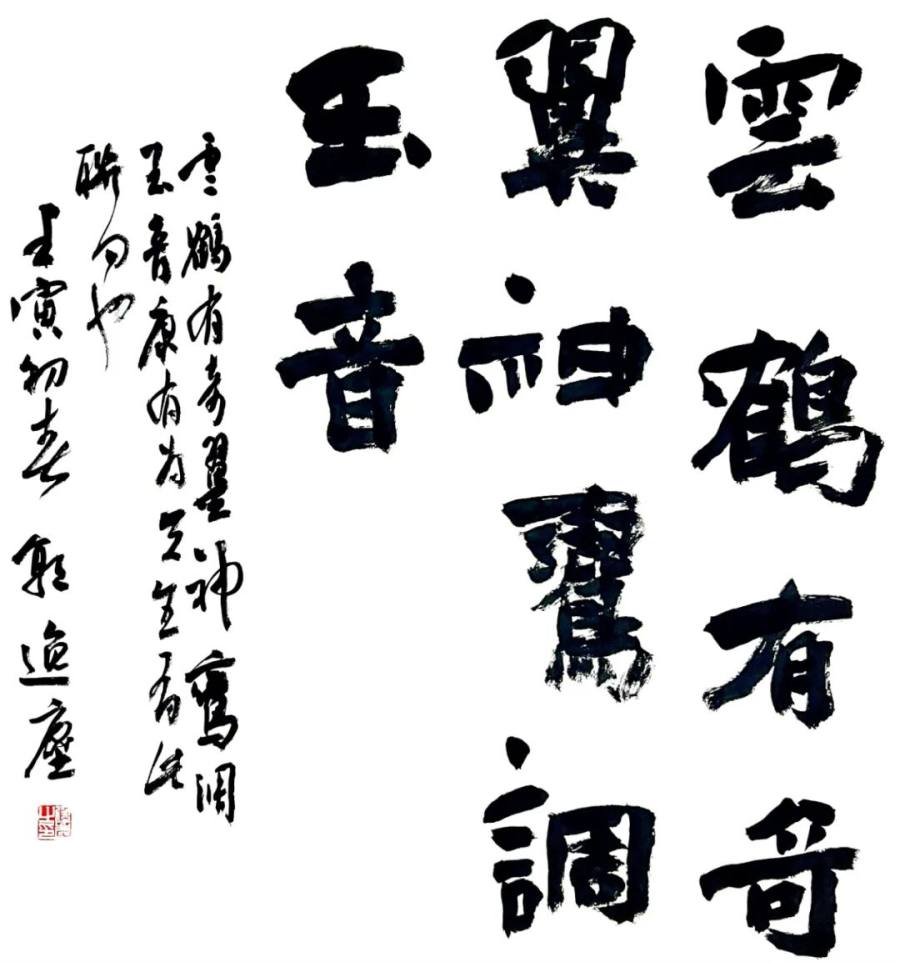 雲鶴有奇
翼神鸞調
玉音
雲鶴有奇翼神鸞調
玉音康有为先生有此
聯句也
壬寅初春